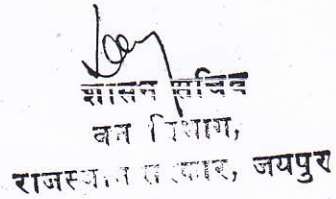 शासन सचिव
वन विभाग,
राजस्थान सरकार, जयपुर